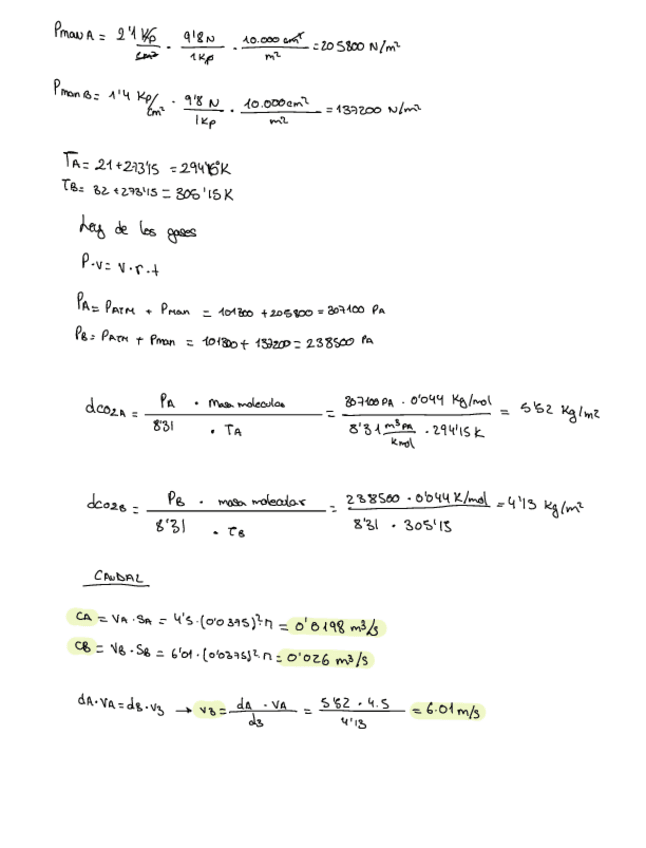 Pman A = 2'1 Kp/cm² · 9'8 N/1 Kp · 10.000 cm²/m² = 205800 N/m²
Pman B = 1'4 Kp/cm² · 9'8 N/1 Kp · 10.000 cm²/m² = 137200 N/m²
TA = 21 + 273'15 = 294'15 K
TB = 32 + 273'15 = 305'15 K
Ley de los gases
P·v = v·r·t
PA = PATM + Pman = 101300 + 205800 = 307100 PA
PB = PATM + Pman = 101300 + 137200 = 238500 PA
dco2A = PA · masa molecular / 8'31 · TA = 307100 PA · 0'044 Kg/mol / 8'31 m³PA/Kmol · 294'15 K = 5'52 Kg/m²
dco2B = PB · masa molecular / 8'31 · TB = 238500 · 0'044 K/mol / 8'31 · 305'15 = 4'13 Kg/m²
CAUDAL
CA = VA · SA = 4'5 · (0'0375)² π = 0'0198 m³/s
CB = VB · SB = 6'01 · (0'0375)² π = 0'026 m³/s
dA·VA = dB·VB → VB = dA · VA / dB = 5'52 · 4.5 / 4'13 = 6.01 m/s